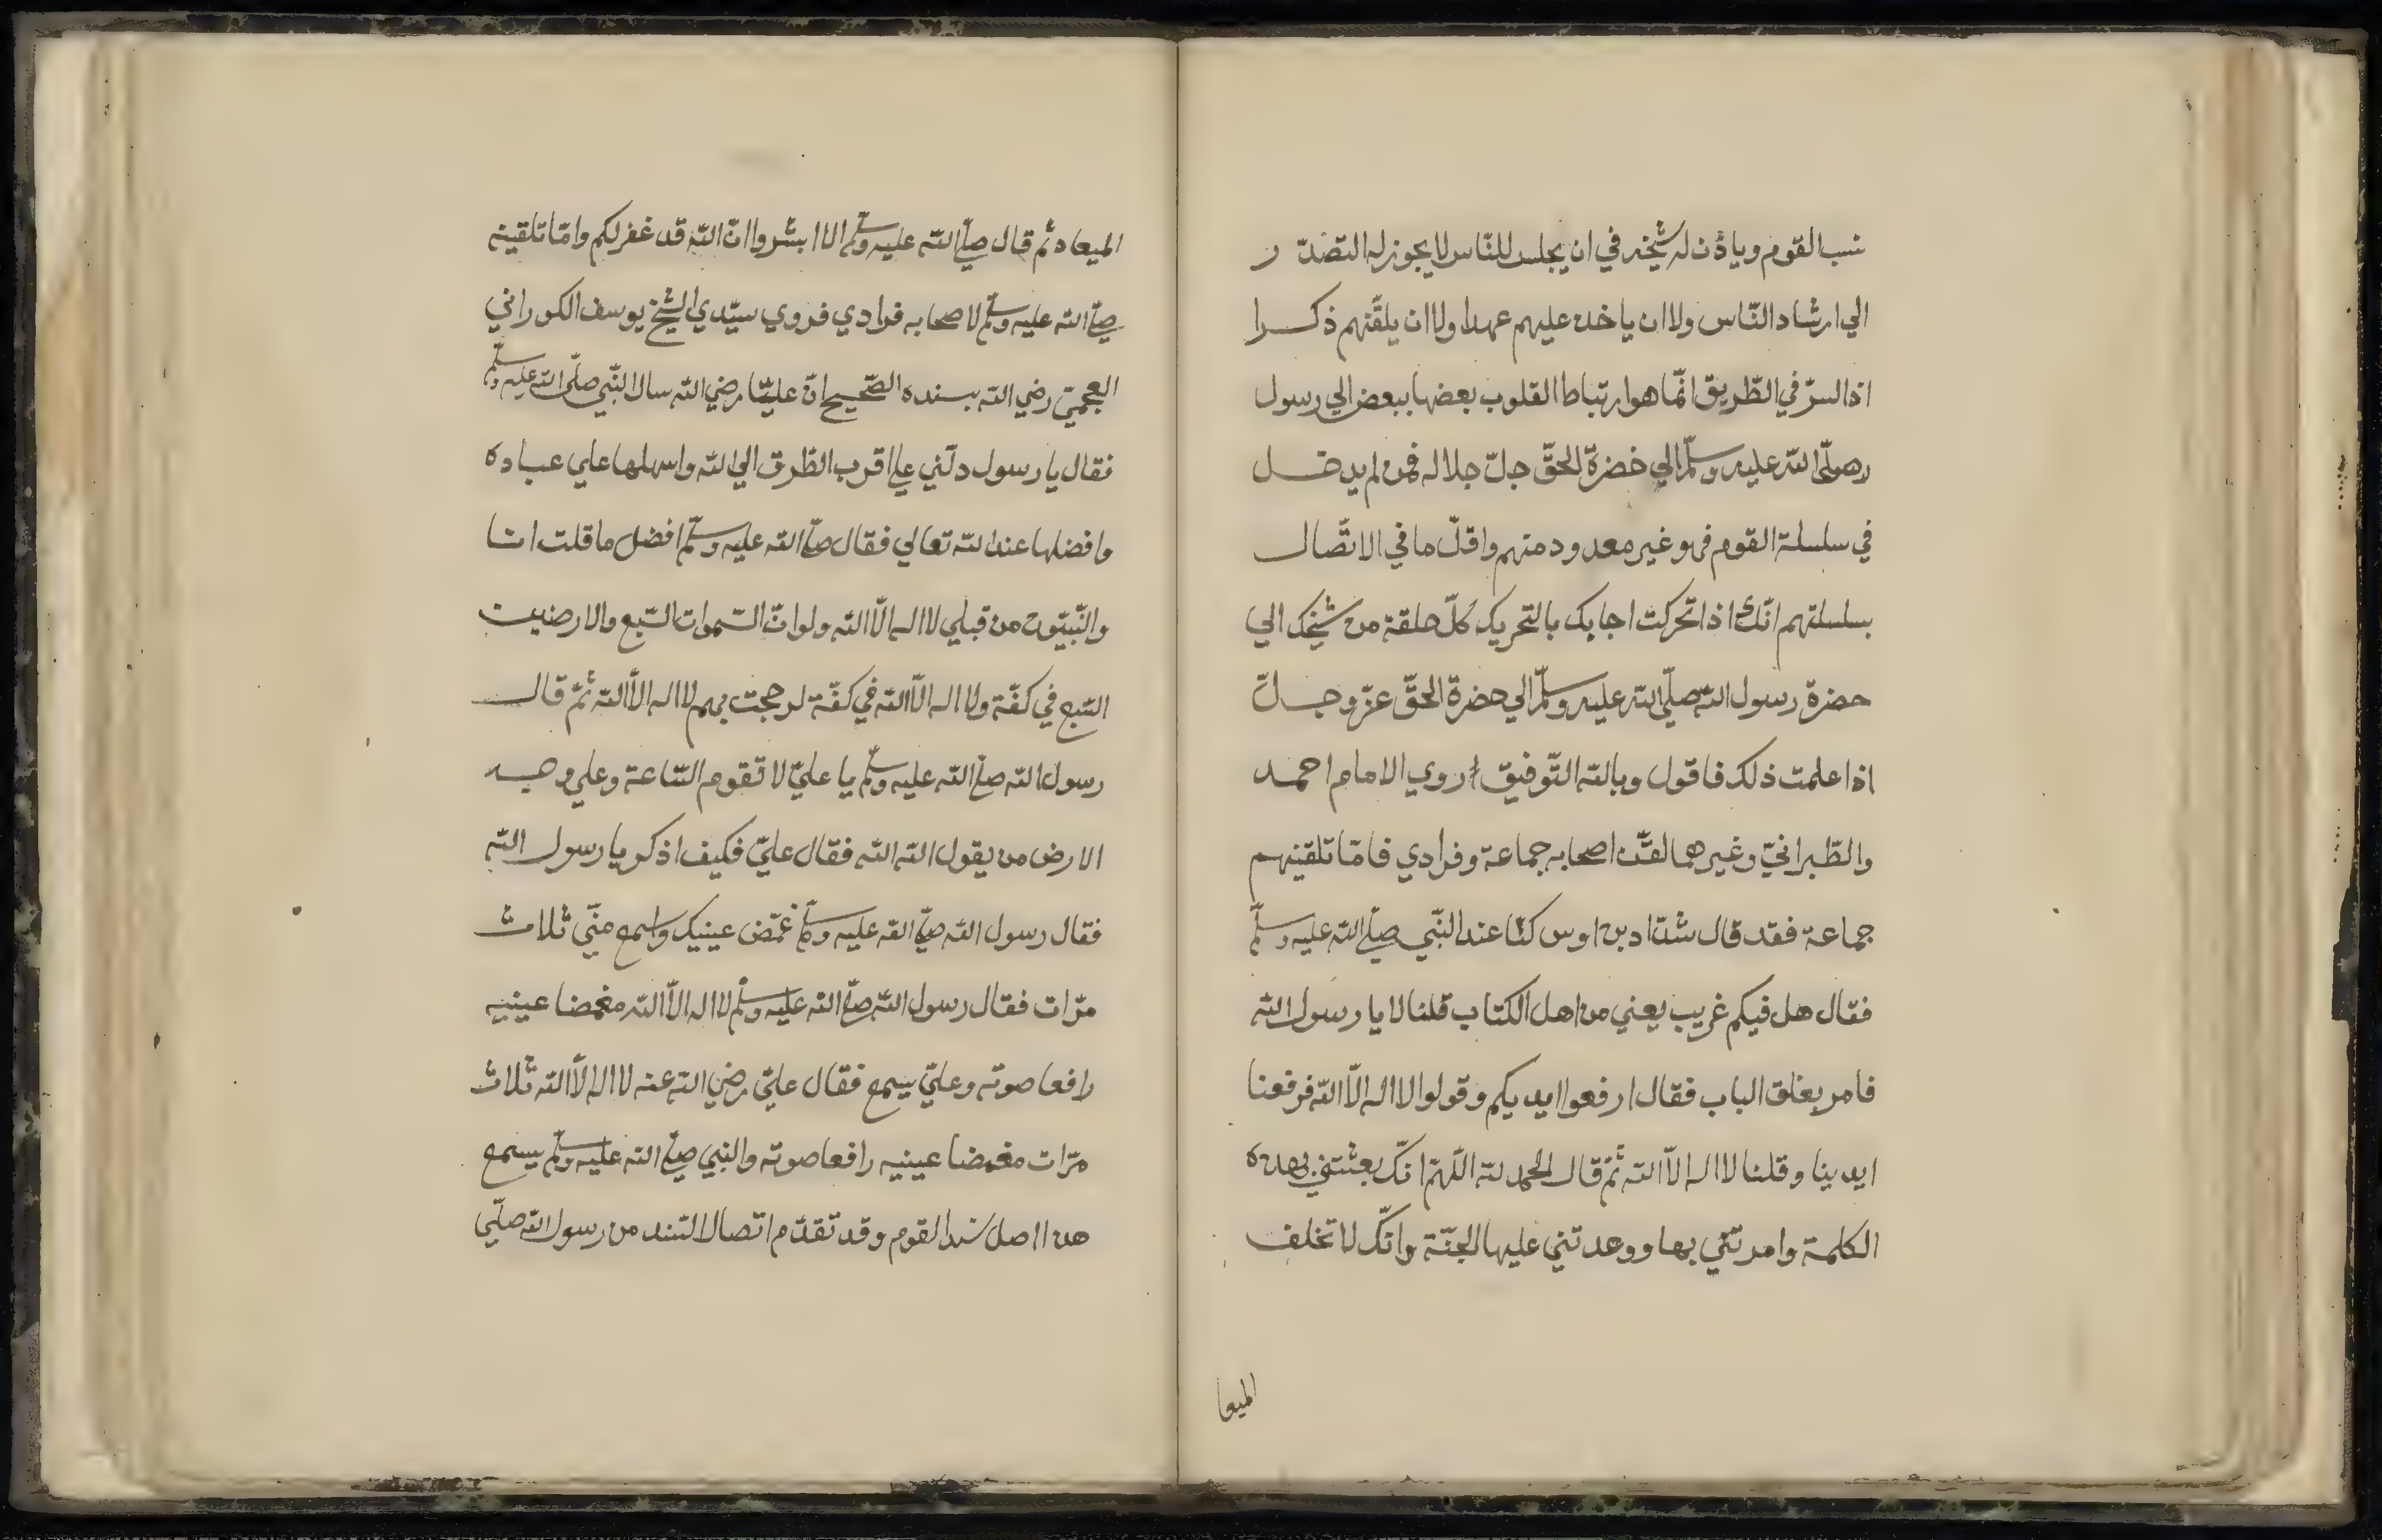 نسب القوم وياذن له شيخه في ان يجلس للنّاس لا يجوز له التصدّر
الي ارشاد النّاس ولا ان ياخذ عليهم عهدا ولا ان يلقّنهم ذكرا
اذ السرّ في الطّريق انّما هو ارتباط القلوب بعضها ببعض الي رسول
صلّى الله عليه وسلّم الي حضرة الحقّ جلّ جلاله فمن لم يدخل
في سلسلة القوم فهو غير معدود منهم واقلّ ما في الاتّصال
بسلسلتهم انّك اذا تحركت اجابك بالتّحريك كلّ حلقة من شيخك الي
حضرة رسول الله صلّي الله عليه وسلّم الي حضرة الحقّ عزّ وجلّ
اذا علمت ذلك فاقول وبالله التّوفيق روي الامام احمد
والطّبرانيّ وغيرهما لقّن اصحابه جماعة وفرادي فامّا تلقينهم
جماعة فقد قال شدّاد بن اوس كنّا عند النّبي صلّي الله عليه وسلّم
فقال هل فيكم غريب يعني من اهل الكتاب قلنا لا يا رسول الله
فامر بغلق الباب فقال ارفعوا ايديكم وقولوا لا اله الّا الله فرفعنا
ايدينا وقلنا لا اله الّا الله ثمّ قال الحمد لله اللّهمّ انّك بعثتني بهذه
الكلمة وامرتني بها ووعدتني عليها الجنّة وانّك لا تخلف
الميعا
الميعاد ثم قال صلّي الله عليه وسلّم الا ابشروا انّ الله قد غفر لكم وامّا تلقينه
صلّي الله عليه وسلّم لاصحابه فرادي فروي سيّدي الشيخ يوسف الكوراني
العجميّ رضي الله بسنده الصّحيح انّ عليّا رضي الله سال النّبي صلّى الله عليه وسلّم
فقال يا رسول دلّني علي اقرب الطّرق الي الله واسهلها علي عباده
وافضلها عند الله تعالي فقال صلّي الله عليه وسلّم افضل ما قلت انا
والنّبيّون من قبلي لا اله الّا الله ولو انّ السّموات السّبع والارضين
السّبع في كفّة ولا اله الّا الله في كفّة لرجحت بهم لا اله الّا الله ثمّ قال
رسول الله صلّي الله عليه وسلّم يا عليّ لا تقوم السّاعة وعلي وجه
الارض من يقول الله الله فقال عليّ فكيف اذكر يا رسول الله
فقال رسول الله صلّي الله عليه وسلّم غمّض عينيك واسمع منّي ثلاث
مرّات فقال رسول الله صلّي الله عليه وسلّم لا اله الّا الله مغمضا عينيه
رافعا صوته وعليّ يسمع فقال عليّ رضي الله عنه لا اله الّا الله ثلاث
مرّات مغمضا عينيه رافعا صوته والنبي صلّي الله عليه وسلّم يسمع
هذا اصل سند القوم وقد تقدّم اتصال السّند من رسول الله صلّي